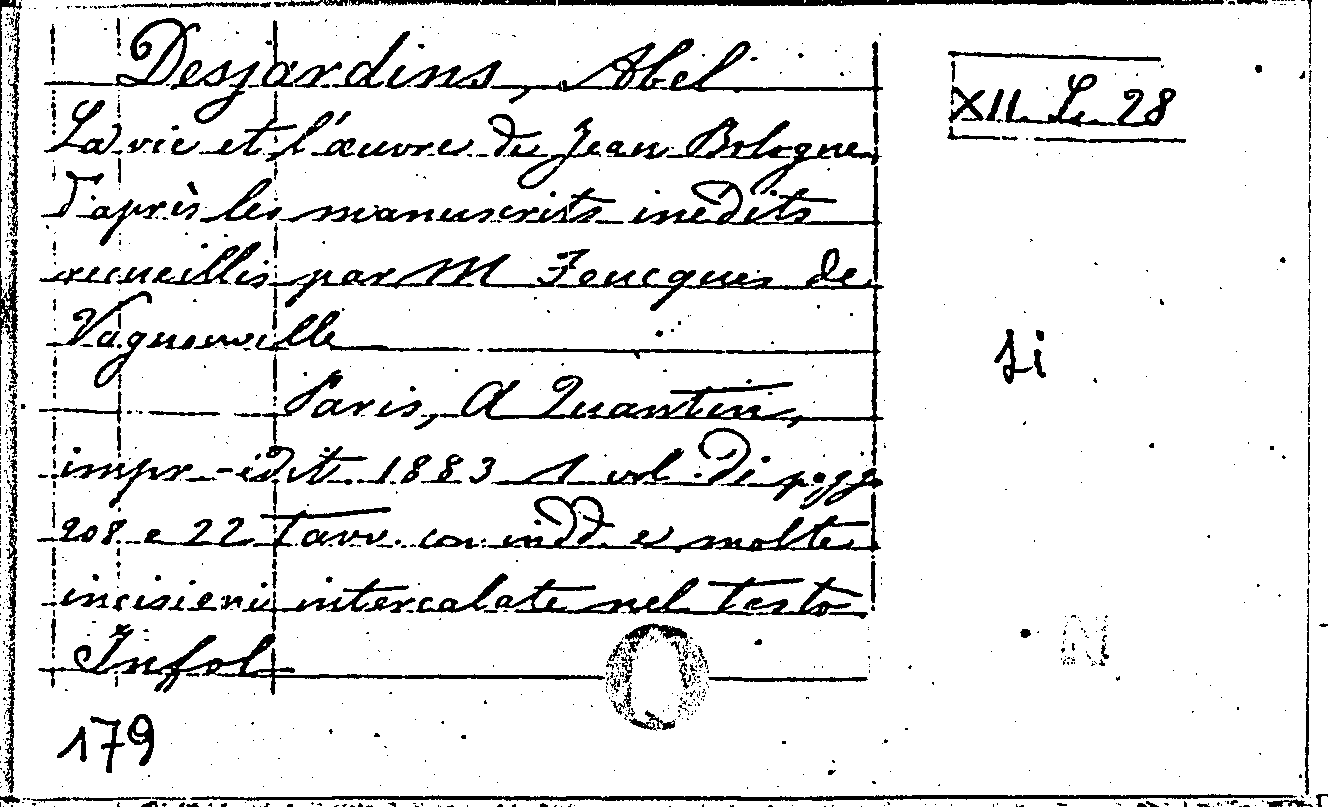 Desjardins, Abel
XII. L. 28
La vie et l'œuvre de Jean Bologne
d'après les manuscrits inédits
recueillis par M Foucques de
Vagnonville
Li
Paris, A Quantin,
impr-édit. 1883 1 vol. di pagg
208 e 22 Tavv. con indd. e molte
incisioni intercalate nel testo
In fol
N
179